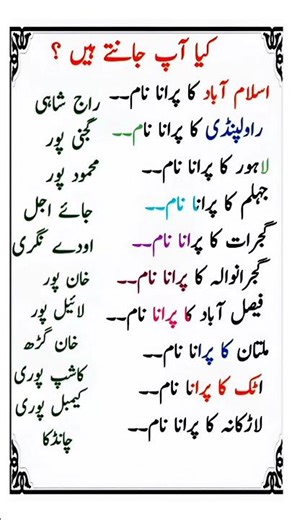 کیا آپ جانتے ہیں ؟
اسلام آباد کا پرانا نام۔۔
راولپنڈی کا پرانا نام۔۔
لاہور کا پرانا نام۔۔
جہلم کا پرانا نام۔۔
گجرات کا پرانا نام۔۔
گجرانوالہ کا پرانا نام۔۔
فیصل آباد کا پرانا نام۔۔
ملتان کا پرانا نام۔۔
اٹک کا پرانا نام۔۔
لاڑکانہ کا پرانا نام۔۔
راج شاہی
گجنی پور
محمود پور
جائے اجل
اودے نگری
خان پور
لائیل پور
خان گڑھ
کاشپ پوری
کیمبل پوری
چانڈکا